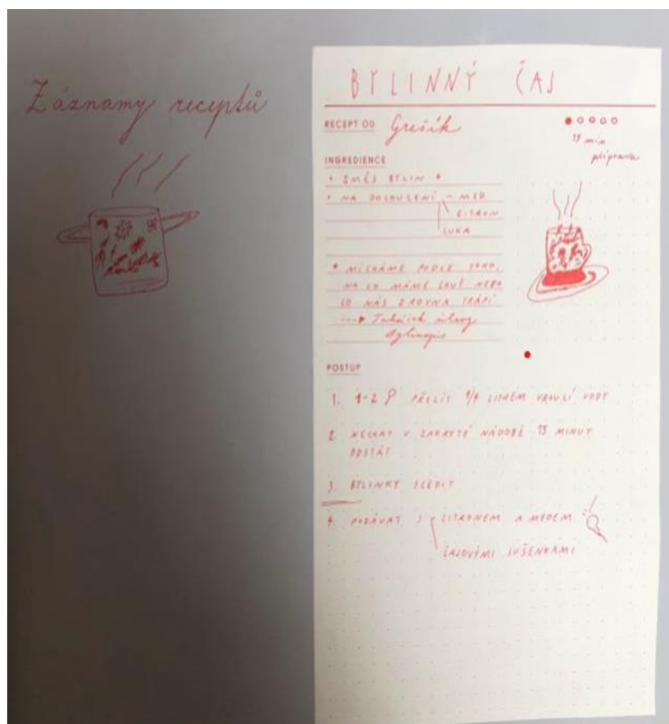 Záznamy receptů
BYLINNÝ ČAJ
RECEPT OD Grešík
15 min
příprava
INGREDIENCE
* SMĚS BYLIN *
* NA DOSLAZENÍ – MED
CITRON
CUKR
* MÍCHÁME PODLE TOHO,
NA CO MÁME CHUŤ NEBO
CO NÁS ZROVNA TRÁPÍ
POSTUP
1. 1-2 PŘELÍT 1/4 LITREM VROUCÍ VODY
2. NECHAT V ZAKRYTÉ NÁDOBĚ 15 MINUT
ODSTÁT
3. BYLINKY SCEDIT
4. PODÁVAT S CITRONEM A MEDEM
ČAJOVÝMI SUŠENKAMI